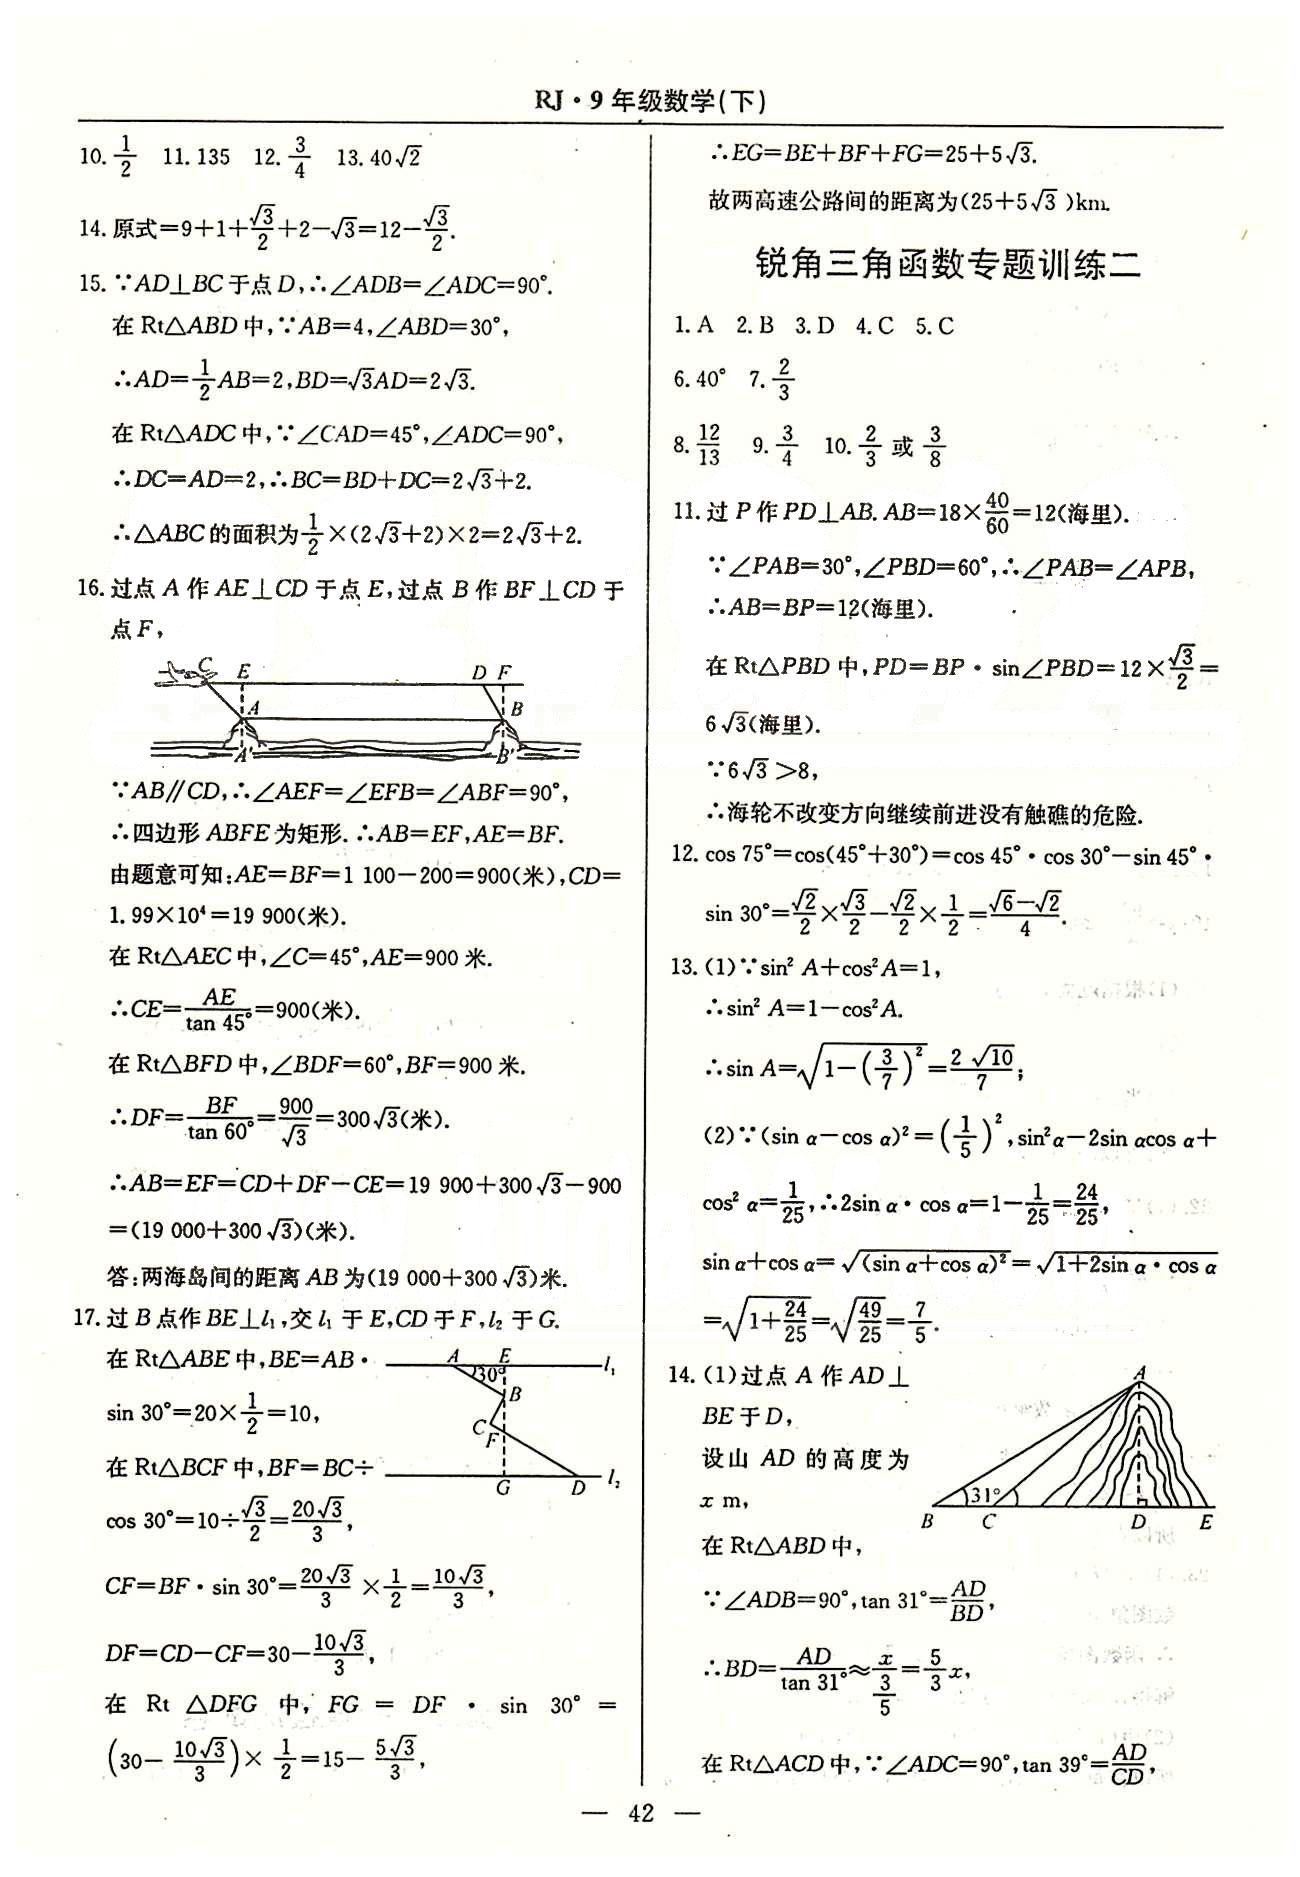 RJ·9年级数学(下)
10. 1/2 11. 135 12. 3/4 13. 40√2
14. 原式=9+1+√3/2+2-√3=12-√3/2.
15. ∵AD⊥BC于点D,∴∠ADB=∠ADC=90°.
在Rt△ABD中,∵AB=4,∠ABD=30°,
∴AD=1/2AB=2,BD=√3AD=2√3.
在Rt△ADC中,∵∠CAD=45°,∠ADC=90°,
∴DC=AD=2,∴BC=BD+DC=2√3+2.
∴△ABC的面积为1/2×(2√3+2)×2=2√3+2.
16. 过点A作AE⊥CD于点E,过点B作BF⊥CD于
点F,
C E D F
A B
A' B'
∵AB∥CD,∴∠AEF=∠EFB=∠ABF=90°,
∴四边形ABFE为矩形.∴AB=EF,AE=BF.
由题意可知:AE=BF=1 100-200=900(米),CD=
1.99×10⁴=19 900(米).
在Rt△AEC中,∠C=45°,AE=900米.
∴CE=AE/tan 45°=900(米).
在Rt△BFD中,∠BDF=60°,BF=900米.
∴DF=BF/tan 60°=900/√3=300√3(米).
∴AB=EF=CD+DF-CE=19 900+300√3-900
=(19 000+300√3)(米).
答:两海岛间的距离AB为(19 000+300√3)米.
17. 过B点作BE⊥l₁,交l₁于E,CD于F,l₂于G.
在Rt△ABE中,BE=AB·
sin 30°=20×1/2=10,
在Rt△BCF中,BF=BC÷
A E l₁
30°
B
C
F
G D l₂
cos 30°=10÷√3/2=20√3/3,
CF=BF·sin 30°=20√3/3×1/2=10√3/3,
DF=CD-CF=30-10√3/3,
在 Rt △DFG 中, FG = DF · sin 30° =
(30-10√3/3)×1/2=15-5√3/3,
∴EG=BE+BF+FG=25+5√3.
故两高速公路间的距离为(25+5√3)km.
锐角三角函数专题训练二
1. A 2. B 3. D 4. C 5. C
6. 40° 7. 2/3
8. 12/13 9. 3/4 10. 2/3或3/8
11. 过P作PD⊥AB. AB=18×40/60=12(海里).
∵∠PAB=30°,∠PBD=60°,∴∠PAB=∠APB,
∴AB=BP=12(海里).
在Rt△PBD中,PD=BP·sin∠PBD=12×√3/2=
6√3(海里).
∵6√3>8,
∴海轮不改变方向继续前进没有触礁的危险.
12. cos 75°=cos(45°+30°)=cos 45°·cos 30°-sin 45°·
sin 30°=√2/2×√3/2-√2/2×1/2=(√6-√2)/4.
13. (1)∵sin² A+cos²A=1,
∴sin² A=1-cos²A.
∴sin A=√(1-(3/7)²)=2√10/7;
(2)∵(sin α-cos α)²=(1/5)²,sin²α-2sin αcos α+
cos² α=1/25,∴2sin α·cos α=1-1/25=24/25,
sin α+cos α=√(sin α+cos α)²=√(1+2sin α·cos α)
=√(1+24/25)=√(49/25)=7/5.
14. (1)过点A作AD⊥
BE于D,
设山AD的高度为
x m,
A
31°
B C D E
在Rt△ABD中,
∵∠ADB=90°,tan 31°=AD/BD,
∴BD=AD/tan 31°≈x/(3/5)=5/3x,
在Rt△ACD中,∵∠ADC=90°,tan 39°=AD/CD,
— 42 —